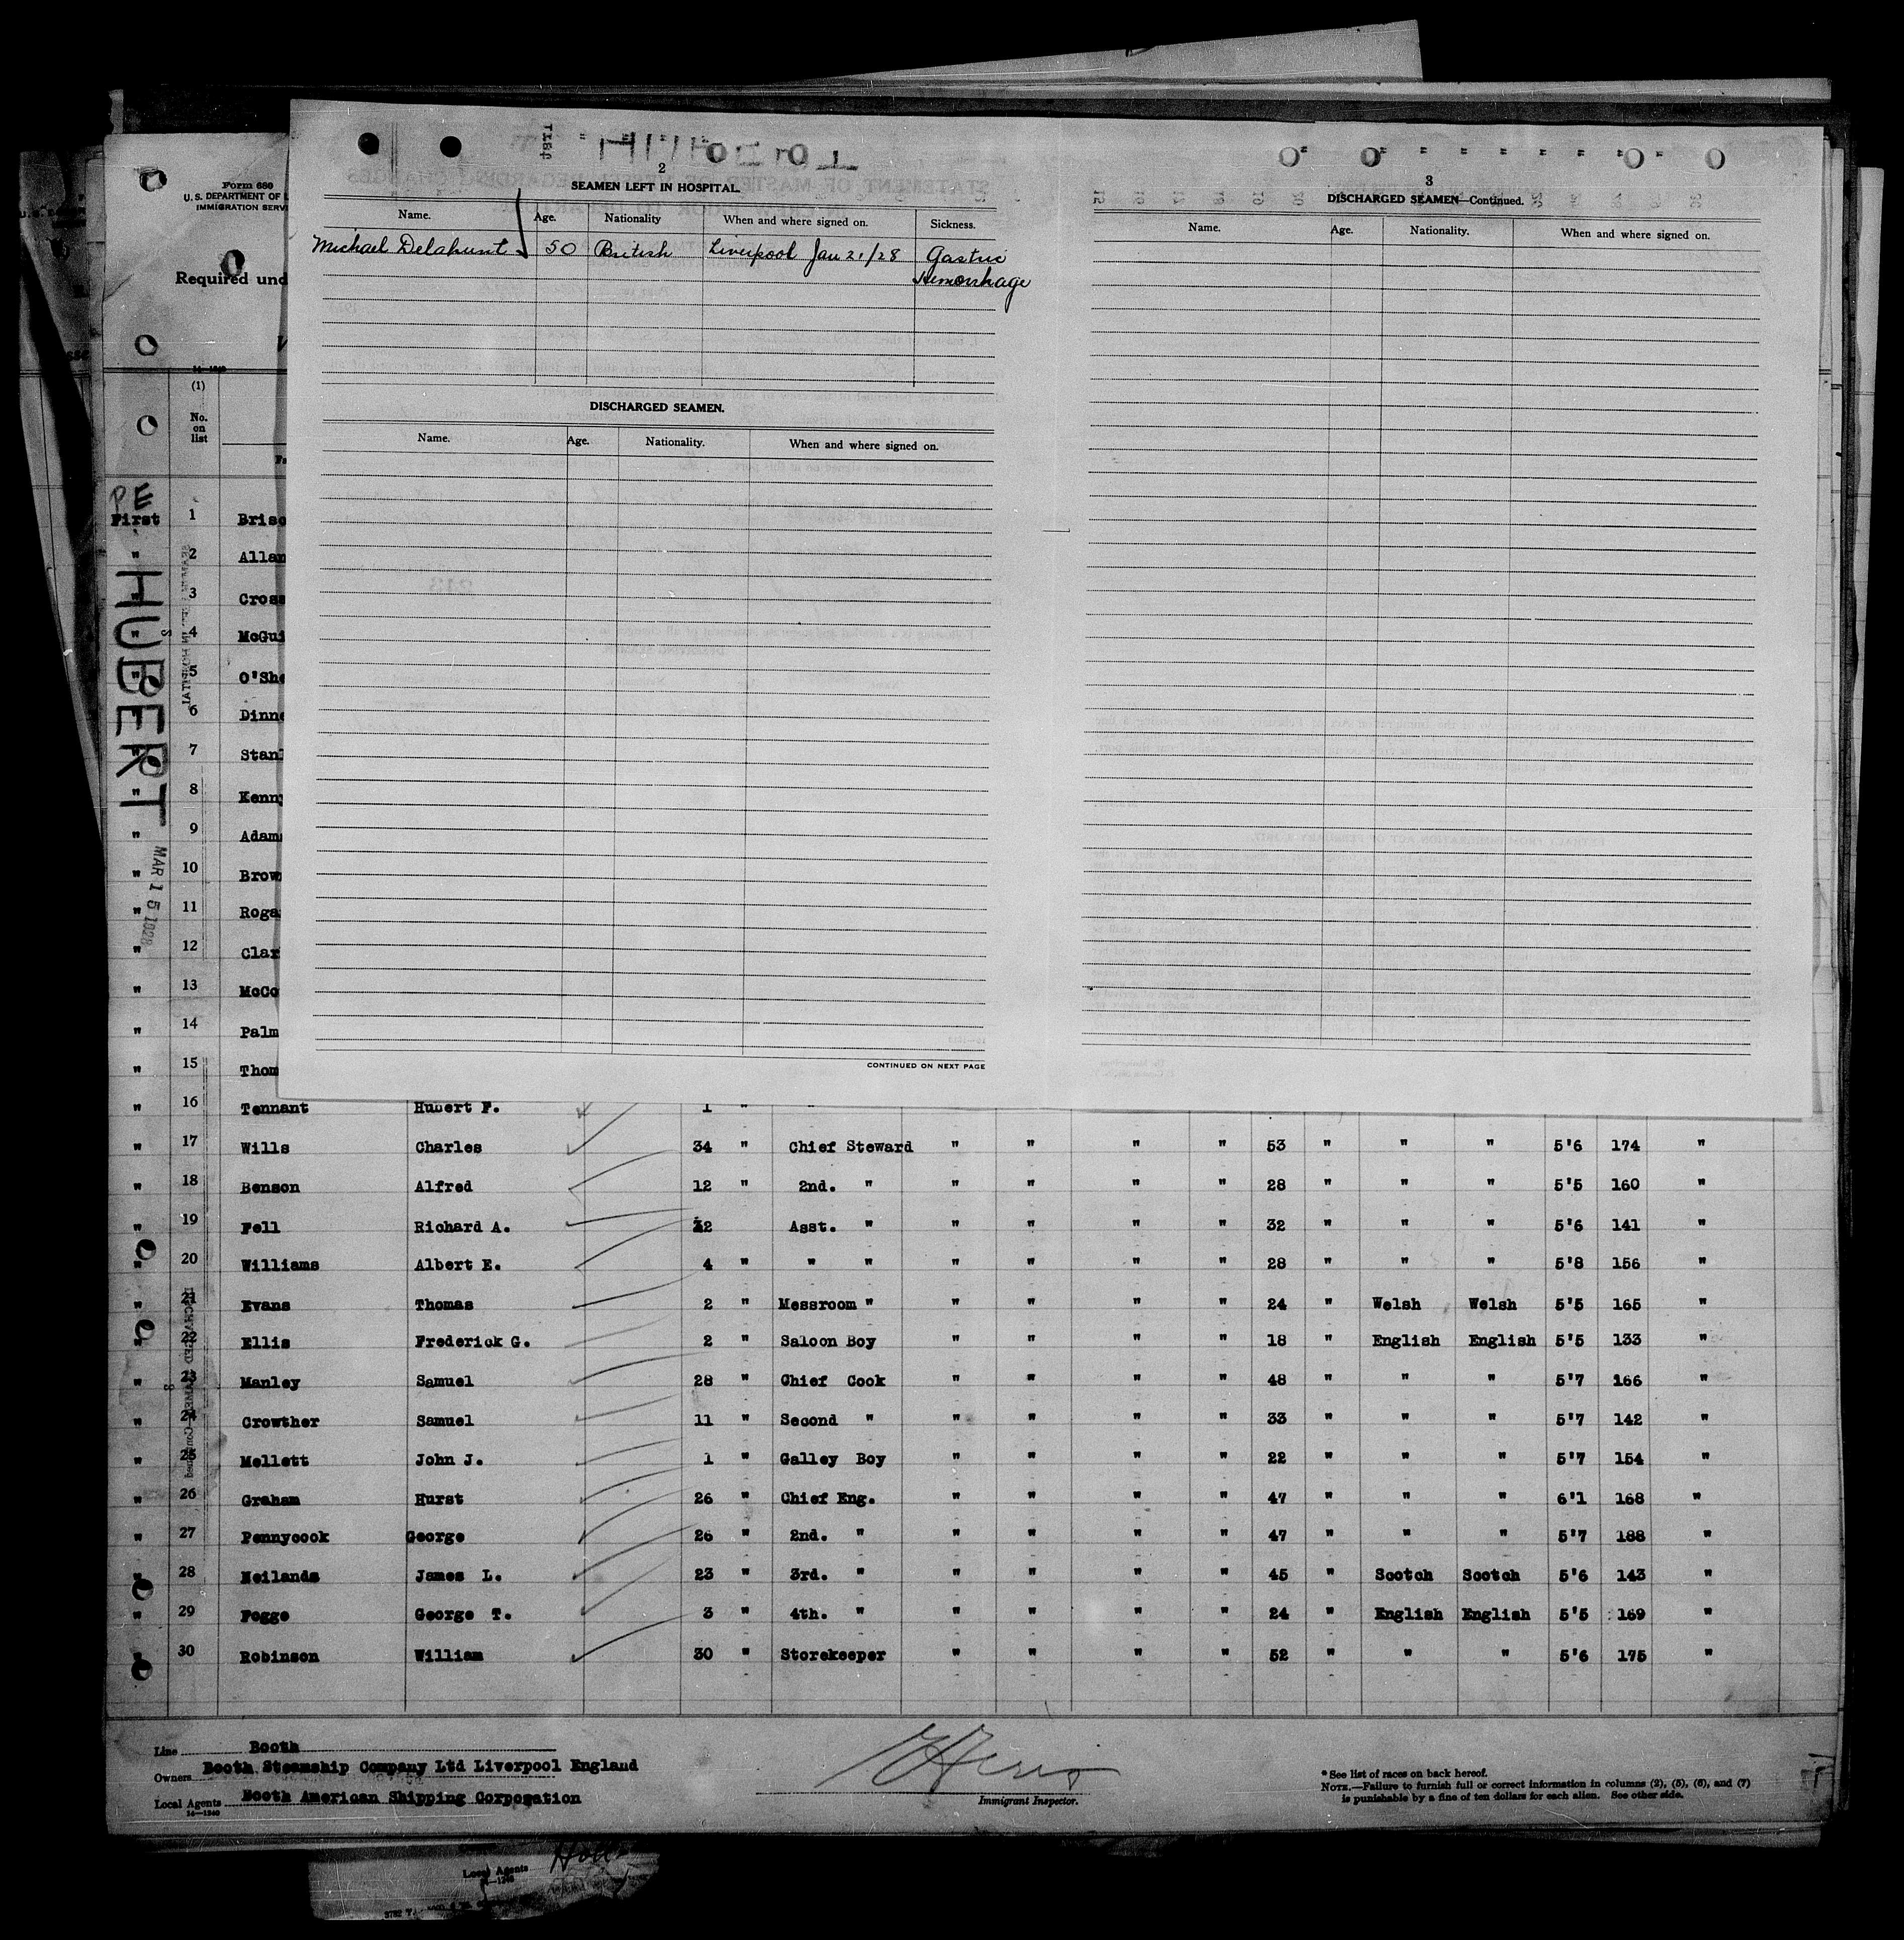 2
SEAMEN LEFT IN HOSPITAL.
Name. Age. Nationality When and where signed on. Sickness.
Michael Delahunt 50 British Liverpool Jan 21/28 Gastric
Hemorrhage
DISCHARGED SEAMEN.
Name. Age. Nationality. When and where signed on.
CONTINUED ON NEXT PAGE
3
DISCHARGED SEAMEN—Continued.
Name. Age. Nationality. When and where signed on.
Form 680
U. S. DEPARTMENT OF
IMMIGRATION SERV
Required und
(1)
No.
on
list
PE
HUBERT
MAR 15 1928
First 1 Brisc
" 2 Allan
" 3 Cross
" 4 McGui
" 5 O'She
" 6 Dinne
" 7 Stan
" 8 Kenny
" 9 Adam
" 10 Brow
" 11 Roga
" 12 Clar
" 13 McCo
" 14 Palm
" 15 Thom
" 16 Tennant Hubert F. 1 " "
" 17 Wills Charles 34 " Chief Steward " " " " 53 " " " 5'6 174 "
" 18 Benson Alfred 12 " 2nd. " " " " " 28 " " " 5'5 160 "
" 19 Fell Richard A. 12 Asst. " " " " " 32 " " " 5'6 141 "
" 20 Williams Albert E. 4 " " " " " " " 28 " " " 5'8 156 "
" 21 Evans Thomas 2 " Messroom " " " " " 24 " Welsh Welsh 5'5 165 "
" 22 Ellis Frederick G. 2 " Saloon Boy " " " " 18 " English English 5'5 133 "
" 23 Manley Samuel 28 " Chief Cook " " " " 48 " " " 5'7 166 "
" 24 Crowther Samuel 11 " Second " " " " " 33 " " " 5'7 142 "
" 25 Mellett John J. 1 " Galley Boy " " " " 22 " " " 5'7 154 "
" 26 Graham Hurst 26 " Chief Eng. " " " " 47 " " " 6'1 168 "
" 27 Pennycook George 26 " 2nd. " " " " " 47 " " " 5'7 188 "
" 28 Neilands James L. 23 " 3rd. " " " " " 45 " Scotch Scotch 5'6 143 "
" 29 Fogge George T. 3 " 4th. " " " " " 24 " English English 5'5 169 "
" 30 Robinson William 30 " Storekeeper " " " " 52 " " " 5'6 175 "
Line Booth
Owners Booth Steamship Company Ltd Liverpool England
Local Agents Booth American Shipping Corporation
14—1240
Immigrant Inspector.
* See list of races on back hereof.
NOTE.—Failure to furnish full or correct information in columns (2), (5), (6), and (7)
is punishable by a fine of ten dollars for each alien. See other side.
Local Agents